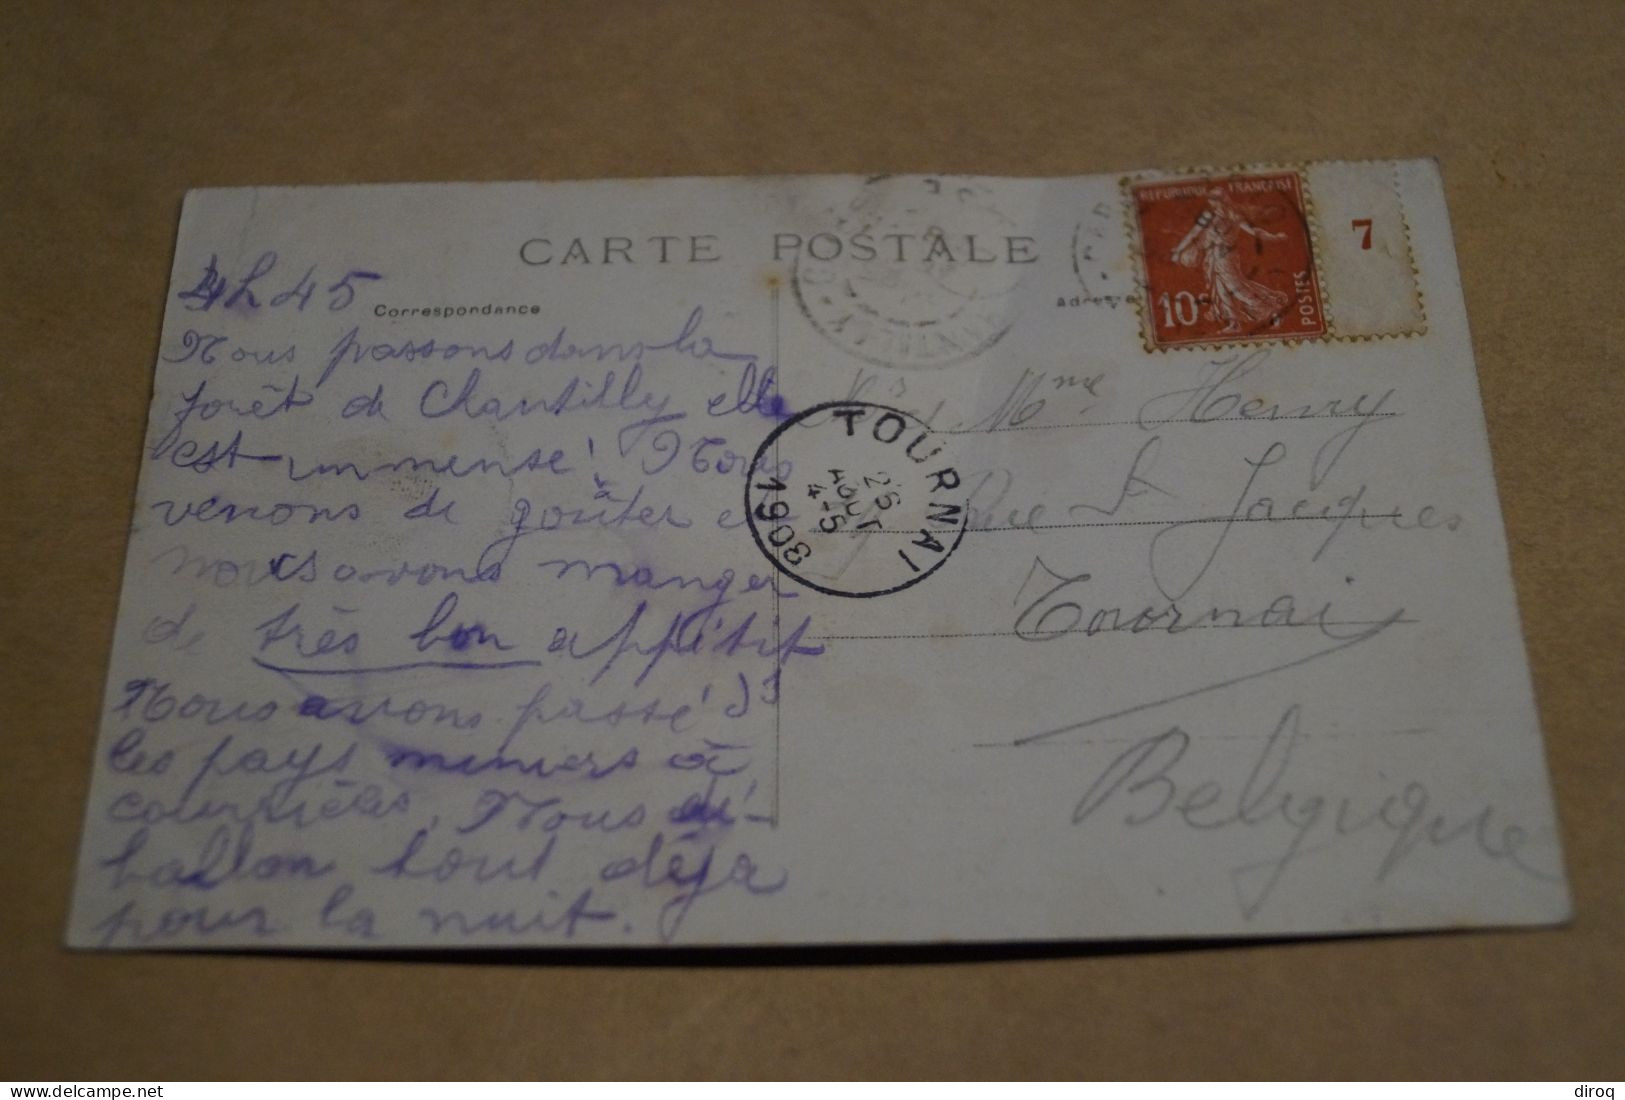 CARTE POSTALE
Correspondance
adresse
4h45
Nous passons dans la
forêt de Chantilly elle
est immense! Nous
venons de goûter et
nous avons manger
de très bon appétit
Nous avons passé ds
les pays miniers à
courrières. Nous
ballon tout déjà
pour la nuit.
REPUBLIQUE FRANÇAISE
10c
POSTES
7
TOURNAI
25
AOUT
4-5
1908
Mme Henry
Rue St Jacques
Tournai
Belgique
diroq